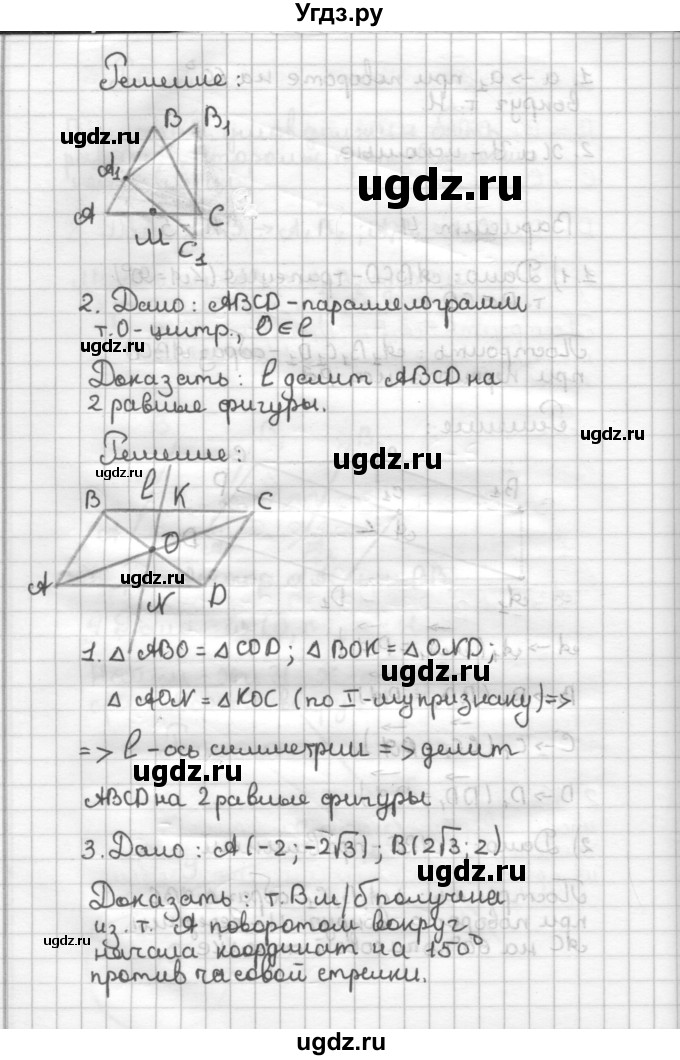 Угдз.ру
Решение:
ugdz.ru
B B₁
A₁
ugdz.ru
A M C
C₁
2. Дано: ABCD - параллелограмм
т.O - центр., O ∈ l
ugdz.ru
Доказать: l делит ABCD на
2 равные фигуры.
ugdz.ru
Решение:
ugdz.ru
ugdz.ru
B l K C
O
A ugdz.ru
N D
1. △ ABO = △ COD; △ BOK = △ OND;
ugdz.ru
△ AON = △ KOC (по I-му признаку) =>
=> l - ось симметрии => делит
ugdz.ru
ABCD на 2 равные фигуры
3. Дано: A(-2; -2√3); B(2√3; 2)
ugdz.ru
Доказать: т. B м/б получена
из т. A поворотом вокруг
ugdz.ru
начала координат на 150°
ugdz.ru
против часовой стрелки.
ugdz.ru